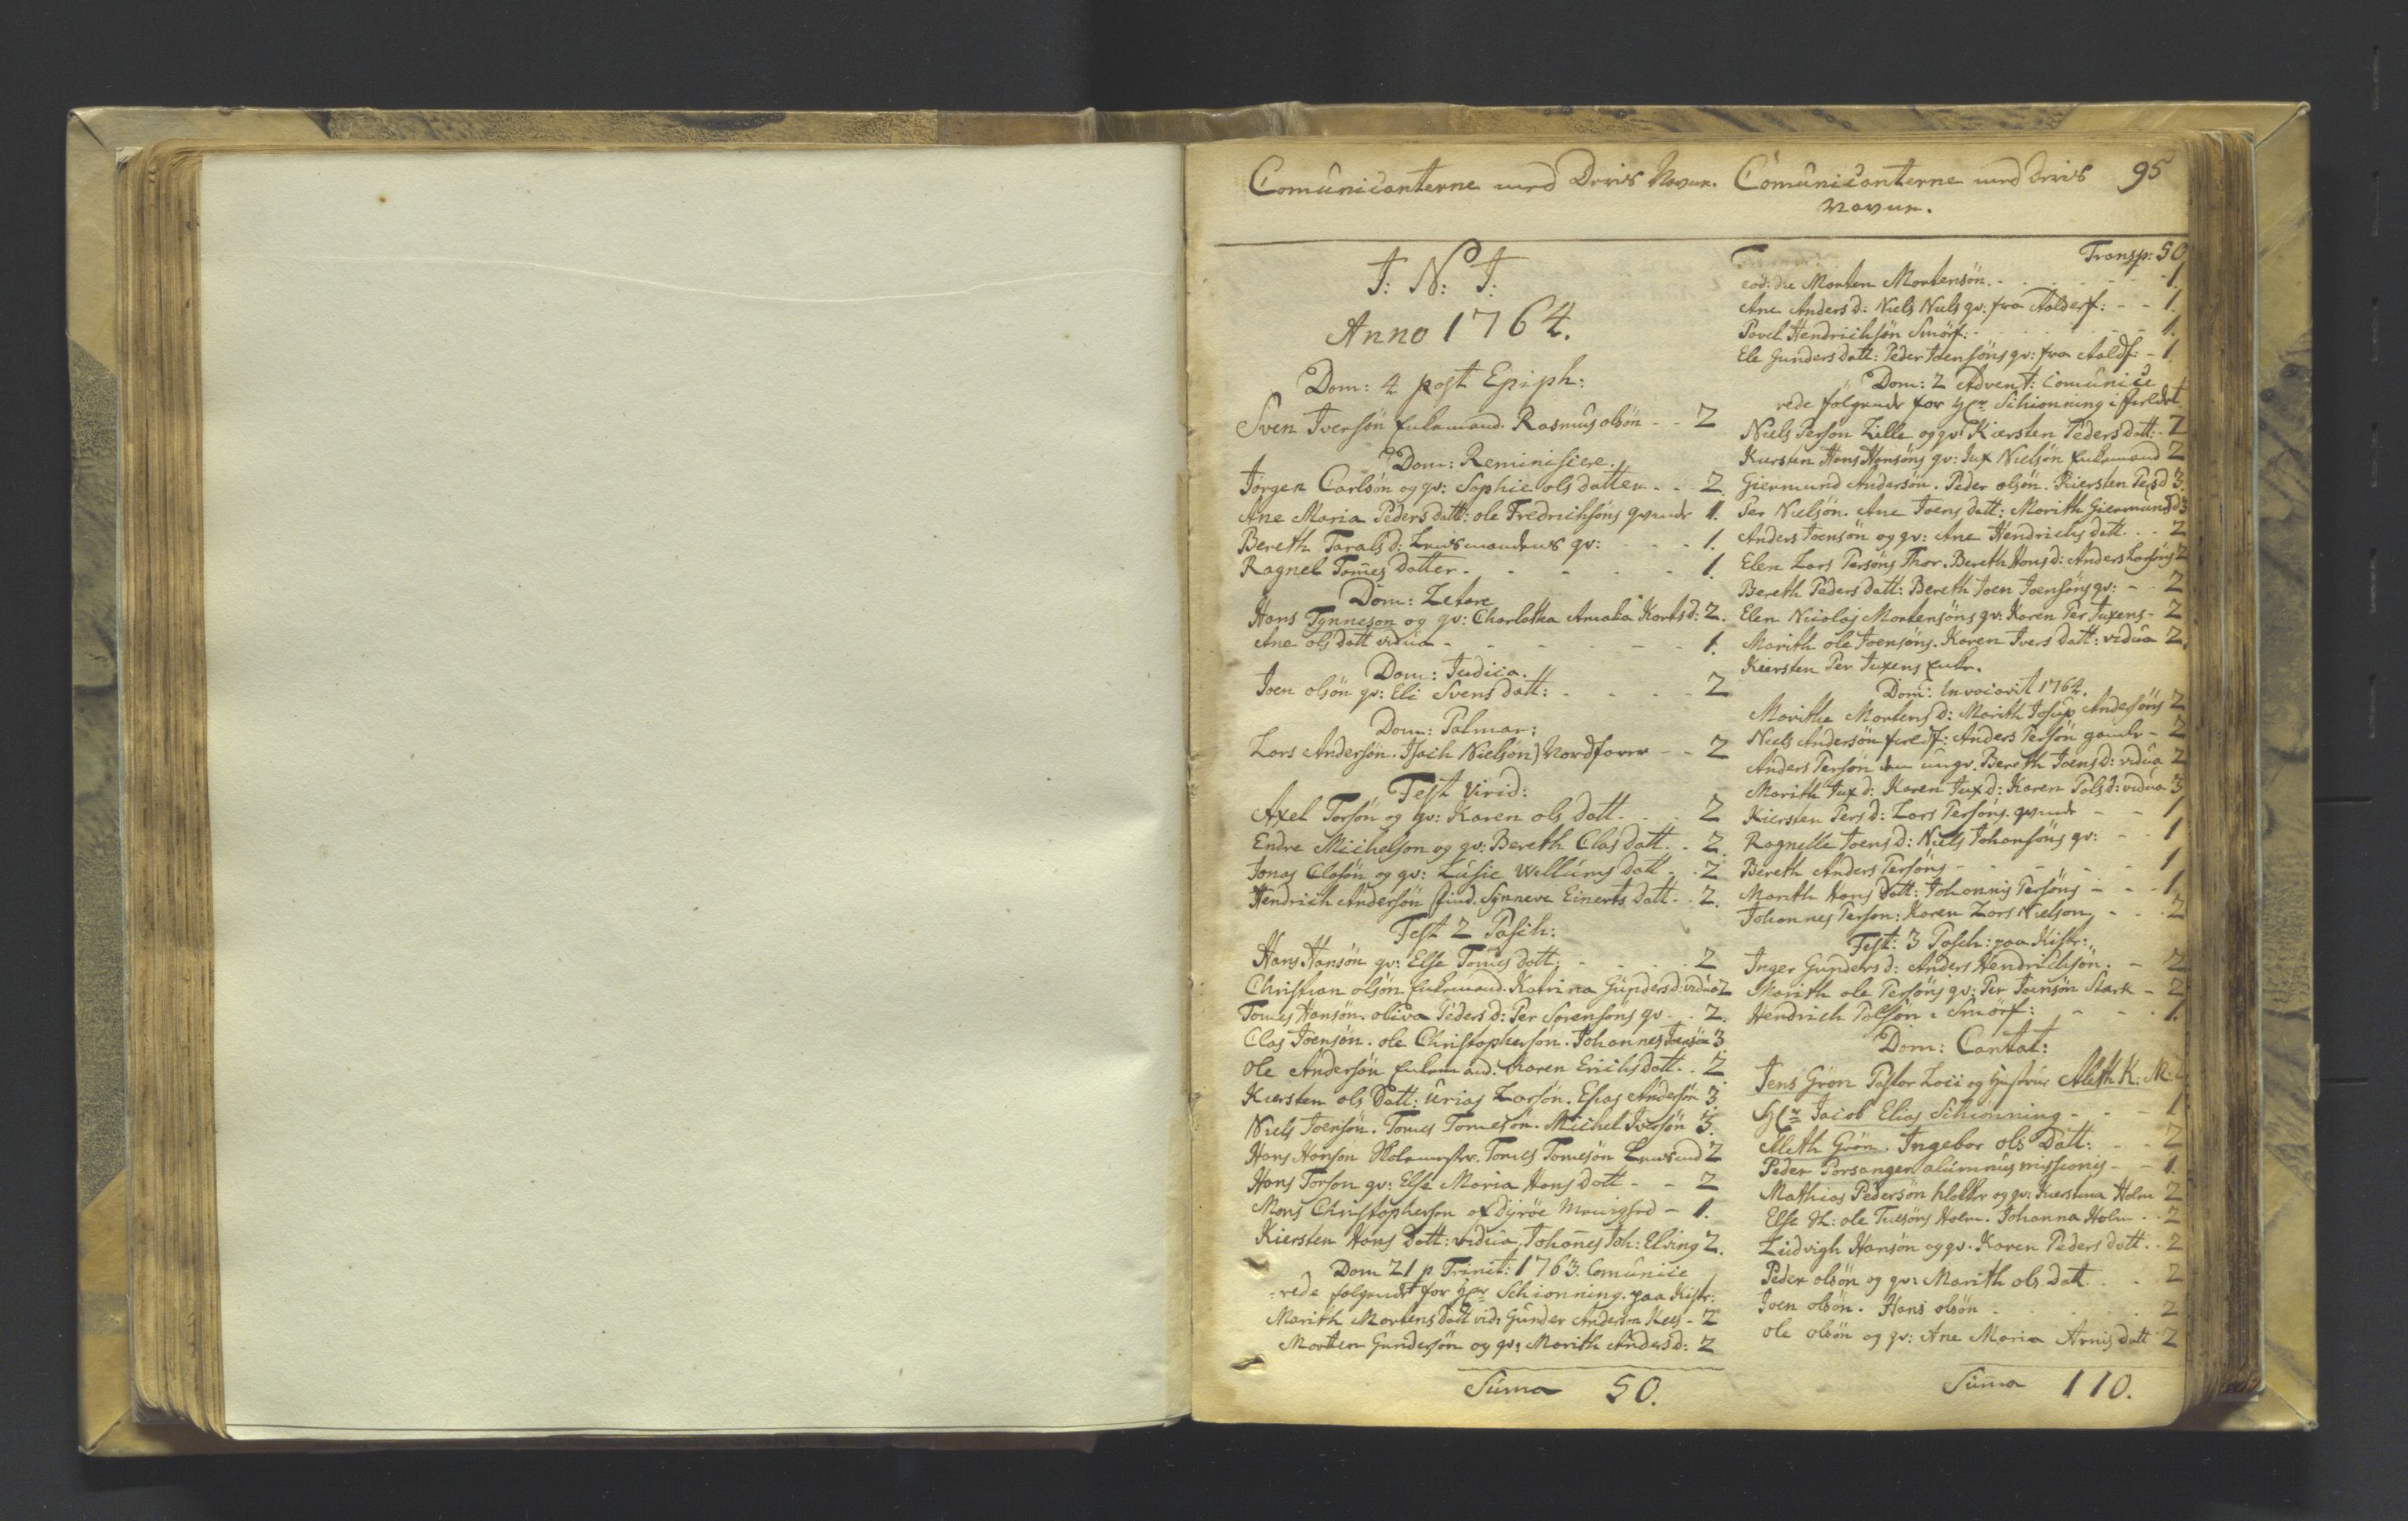 Comûnicanterne med Deris Navne.
J: N: J:
Anno 1764.
Dom: 4 post Epiph:
Sven Iversön Enkemand. Rasmus olsön - - 2
Dom: Reminiscere.
Jörgen Carlsön og qv: Sophie ols datter - - 2.
Ane Maria Peders datt: ole Fredrichsöns qvinde 1.
Bereth Tarals d: Lensmandens qv: - - - 1.
Ragnel Tom̄es datter - - - - - 1.
Dom: Letare
Hans Tÿnneson og qv: Charlotha Amalia Korts d: 2.
Ane ols datt vidua - - - - - - 1.
Dom: Judica.
Joen olsön qv: Eli Svens datt: - - - - 2
Dom: Palmar:
Lars Andersön. Isach Nielsön) Nordfarer - - 2
Fest Virid:
Axel Torsön og qv: Karen ols datt. - - 2
Endre Michelson og qv: Bereth Clas datt. - 2.
Jonas Clasön og qv: Lusie Wellums datt - - 2
Hendrich Andersön find. Sÿnneve Einerts datt - 2.
Fest 2 Pasch:
Hans Hansön qv: Else Tom̄es datt: - - - 2
Christian olsön Enkemand. Katrina Gunders d: vidua 2
Tomes Hansön. oliva Peders d: Per Sörensöns qv - - 2.
Clas Joensön. ole Christophersön. Johannes Joensön 3
ole Andersön Enkemand. Karen Erichs datt. - 2
Kiersten ols Datt: Urias Larsön. Esias Andersön 3
Niels Joensön. Tomes Tomesön. Michel Iversön 3.
Hans Hansön Skolemester. Tomes Tomesön 2
Hans Torson qv: Else Maria Hans datt - - 2
Mons Christopherson af Dÿröe - 1.
Kiersten Hans Datt: vidua. Johan̄es Joh: Elving 2.
Dom 21 p Trinit: 1763. Comûnice
-rede folgende for Hr Schionning paa Kistr:
Marith Mortens datt vid: Gunder Anderson - 2
Morten Gundersön og qv: Marith Anders d: 2
Suma 50.
Comûnicanterne med Deris 95
Navne.
Transp: 50
eod: die Morten Mortensön. - - - - - 1.
Ane Anders d: Niels Niels qv: fra Aalderf: - - 1.
Povel Hendrichsön Smörf: - - - - - 1.
Ele Gunders datt: Peder Joensöns qv: fra Aaldf: - 1.
Dom: 2 Advent: Comûnice
rede fölgende for Hr Schionning i
Niels Person Lille og qv: Kiersten Peders datt: - 2
Kiersten Hans Hansöns qv: Jux Nielsön Enkemand 2
Giermund Andersön. Peder olsön. Kiersten Pers d 3.
Per Nielsön. Ane Joens datt: Morith Giermunds d 3
Anders Joensön og qv: Ane Hendrichs datt. - - 2
Elen Lars Persöns Thor. Bereth Hans d: Anders Larsöns 2
Bereth Peders datt: Bereth Joen Joensöns qv: - - 2
Elen Nicolaj Mortensöns qv: Karen Per Juxens - 2
Marith ole Joensöns. Karen Ivers datt: vidua 2.
Kiersten Per Juxens Enke.
Dom: Invocavit 1764.
Marithe Mortens d: Marith Josep Andersöns 2
Niels Andersön Anders Persön gamle - 2
Anders Persön den unge. Bereth Joens d: vidua 2
Marith Jux d: Karen Jux d: Karen Pols d: vidua 3
Kiersten Pers d: Lars Persöns qvinde - - 1
Ragnelle Joens d: Niels Johansöns qv: - - 1
Bereth Anders Persöns - - - - - 1
Marith Hans Datt: Johannis Persöns - - - 1.
Johannes Person: Karen Lars Nielsons - - - 2
Fest: 3 Pasch: paa Kistr:
Inger Gunders d: Anders Hendrichsön. - 2
Marith ole Persöns qv: Per Joensön Stark - 2
Hendrich Polsön i Smörf: - - - 1.
Dom: Cantat:
Jens Grön Pastor Loci og Hustrue Aleth K: M: 2
Hr Jacob Elias Schionning - - - 1
Aleth Grön. Ingebor ols Datt: - - 2
Peder Porsanger alumnus missionis - - 1.
Mathias Pedersön klokker og qv: Kierstina Holm 2
Else H: ole Tuesöns Holm. Johanna Holm - - 2
Ludvigh Hansön og qv. Karen Peders datt. - 2
Peder olsön og qv: Marith ols datt. - - 2
Joen olsön. Hans olsön - - - - - 2
ole olsön og qv: Ane Maria Arnis datt 2
Sum̄a 110.